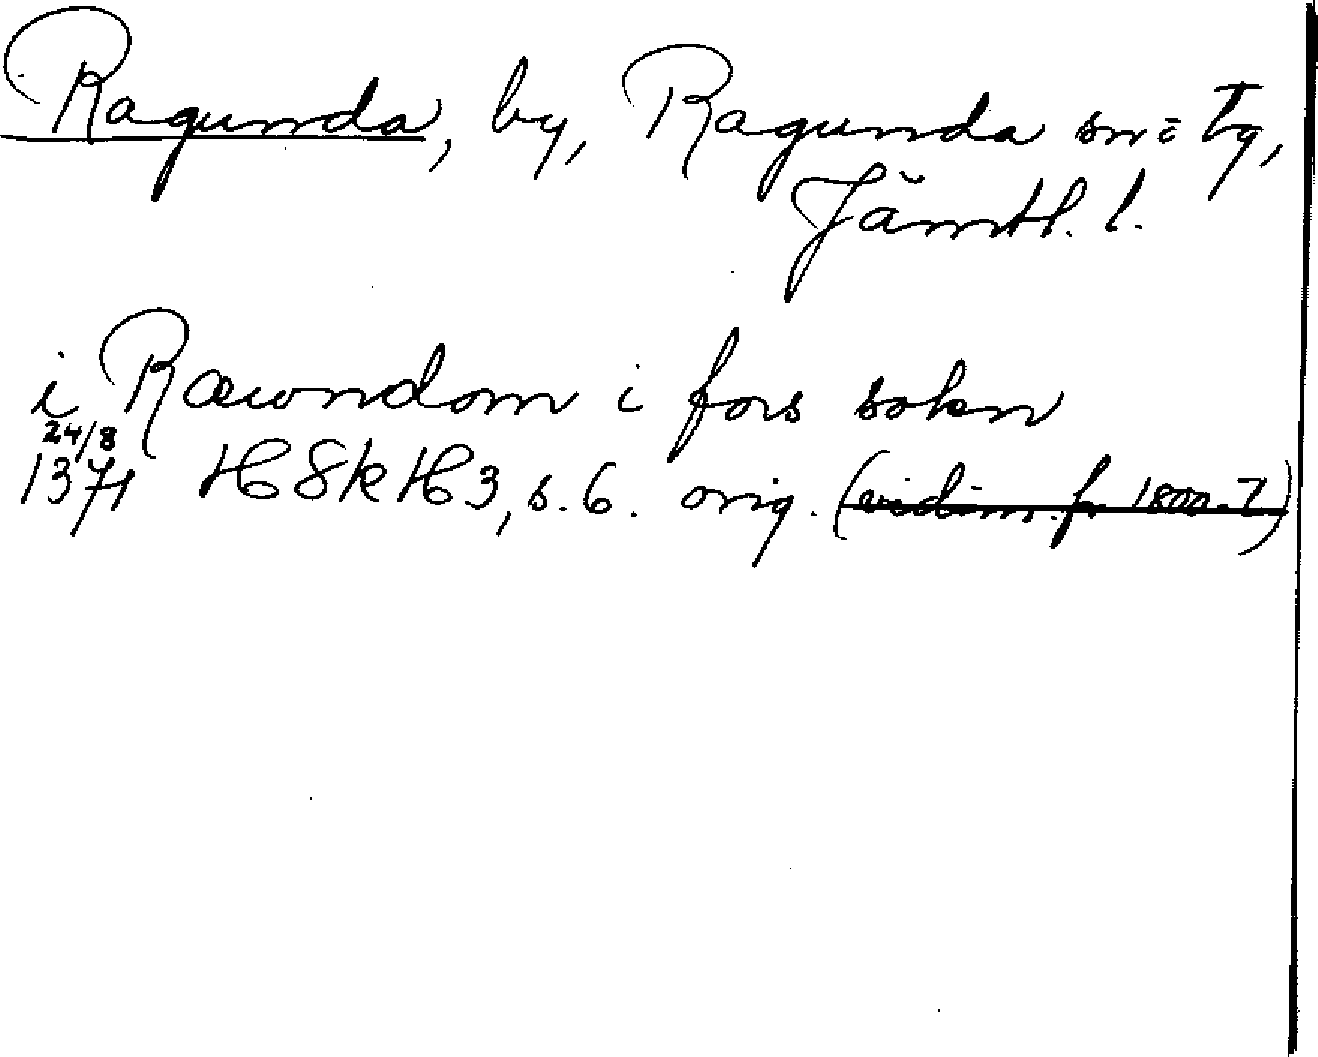 Ragunda, by, Ragunda sn = tg,
Jämtl. l.
i Ræwndom i fors sokn
24/8
1371 HSkH3, s. 6. orig. (vidim. fr 1800-T)